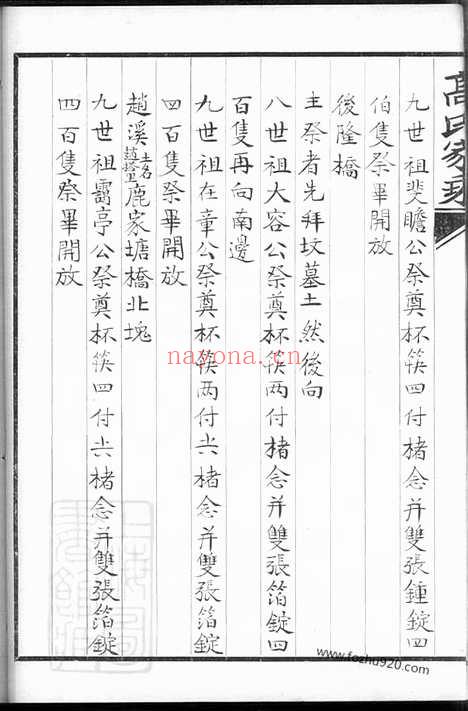 高氏家乘
九世祖斐瞻公祭奠杯筷四付楮念并雙張錘錠四
伯隻祭畢開放
後隆橋
主祭者先拜坟墓土然後向
八世祖大容公祭奠杯筷两付楮念并雙張箔錠四
百隻再向南邊
九世祖在章公祭奠杯筷两付㳟楮念并雙張箔錠
四百隻祭畢開放
趙溪鹿家塘橋北塊
九世祖靄亭公祭奠杯筷四付㳟楮念并雙張箔錠
四百隻祭畢開放
nayona.cn
www.fozhu920.com